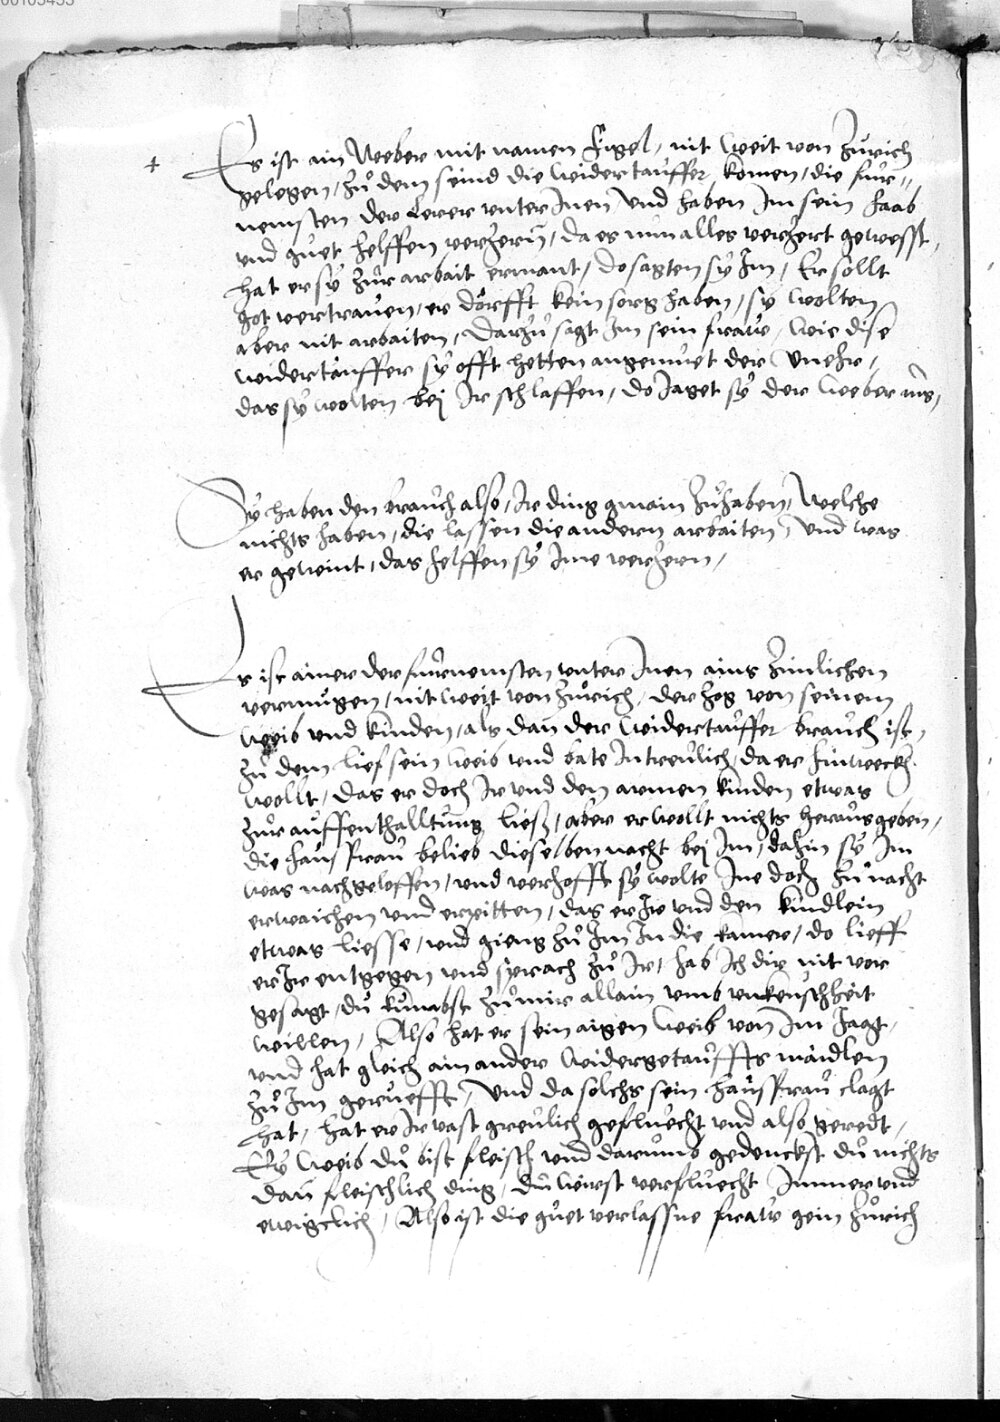 00105433
+ Es ist ain Weeber mit namen Figel, nit weit von Zürich
gelegen, zů dem seind die widertauffer komen, die für„
nemsten der Lerer unter Inen, Und haben Im sein haab
und guet helffen verzern, da es nun alles verzert gewesst,
hat er sÿ zur arbait ermant, do sagten sÿ Im, Er sollt
got vertrauen, er dörfft kein sorg haben, sÿ wolten
aber nit arbaiten, Darzů sagt Im sein fraw, wie dise
widertäuffer sÿ offt hetten angemuet der Unehr,
das sÿ wolten bej Ir schlaffen, do Jaget sÿ der weeber
Sÿ haben den brauch also, Ir ding gmain zůhaben, Welche
nichts haben, die lassen die andern arbaiten, Und was
er gewint, das helffen sÿ Ime verzern,
Es ist ainer der fürnemsten unter Inen ains zimlichen
vermügen, nit weit von Zürich, der zog von seinem
Weib und kinden, als dan der widertauffer brauch ist,
Zů dem lief sein weib und bate In treulich, da er hinweckh
wollt, das er doch Ir und den armen kinden etwas
zur auffenthalltung ließ, aber er wollt nichts herausgeben,
die haußfrau belieb dieselben nacht bej Im, dahin sÿ Im
was nachgeloffen, und verhofft sÿ wolte Ine doch zů nacht
erwaichen und erpitten, das er Ir und den kindlein
etwas liesse, und gieng zů Im In die kamer, do lieff
er Ir entgegen und sprach zů Ir, hab Ich dir nit vor
gesagt, du kumbst zů mir allain umb unkeuschheit
willen, Also hat er sein aigen weib von Im Jagt,
und hat gleich ain ander widergetauffts maidlen
zů Im geruefft, Und da solchs sein haußfrau clagt
hat, hat er Ir vast greulich gefluecht und also geredt,
Eÿ weib du bist fleisch und darumb gedenckst du nichts
dan fleischlich ding, du wirst verfluecht Immer und
ewigclich, Also ist die guet verlassne fraw gein Zürich